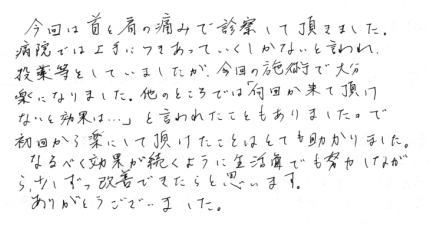 今回は首と肩の痛みで診察して頂きました。
病院では上手につきあっていくしかないと言われ、
投薬等をしていましたが、今回の施術で大分
楽になりました。他のところでは「何回か来て頂け
ないと効果は…」と言われたこともありました。で
初回から楽にして頂けたことはとても助かりました。
なるべく効果が続くように生活面でも努力しなが
ら、少しずつ改善できたらと思います。
ありがとうございました。